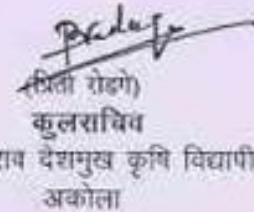 (प्रिती रोडगे)
कुलसचिव
राव देशमुख कृषि विद्यापी
अकोला